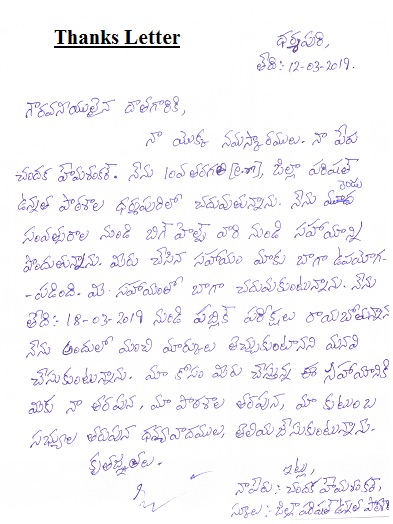 Thanks Letter
ధర్మపురి,
తేది:- 12-03-2019.
గౌరవనీయులైన దాతగారికి,
నా యొక్క నమస్కారములు. నా పేరు
చందక హేమశంకర్. నేను 10వ తరగతి జిల్లా పరిషత్
ఉన్నత పాఠశాల ధర్మపురిలో చదువుతున్నాను. నేను రెండు
సంవత్సరాల నుండి బిగ్ హెల్ప్ వారి నుండి సహాయాన్ని
పొందుతున్నాను. మీరు చేసిన సహాయం మాకు బాగా ఉపయోగ-
-పడింది. మీ సహాయంతో బాగా చదువుకుంటున్నాను. నేను
తేది:- 18-03-2019 నుండి పబ్లిక్ పరీక్షలు రాయబోతున్నాను
నేను అందులో మంచి మార్కులు తెచ్చుకుంటానని మనవి
చేసుకుంటున్నాను. మా కోసం మీరు చేస్తున్న ఈ సహాయానికి
మీకు నా తరపున, మా పాఠశాల తరపున, మా కుటుంబ
సభ్యుల తరుపున ధన్యవాదములు, తెలియచేసుకుంటున్నాను.
కృతజ్ఞతలు.
ఇట్లు,
నా పేరు:- చందక హేమశంకర్,
స్కూలు:- జిల్లా పరిషత్ ఉన్నత పాఠశాల